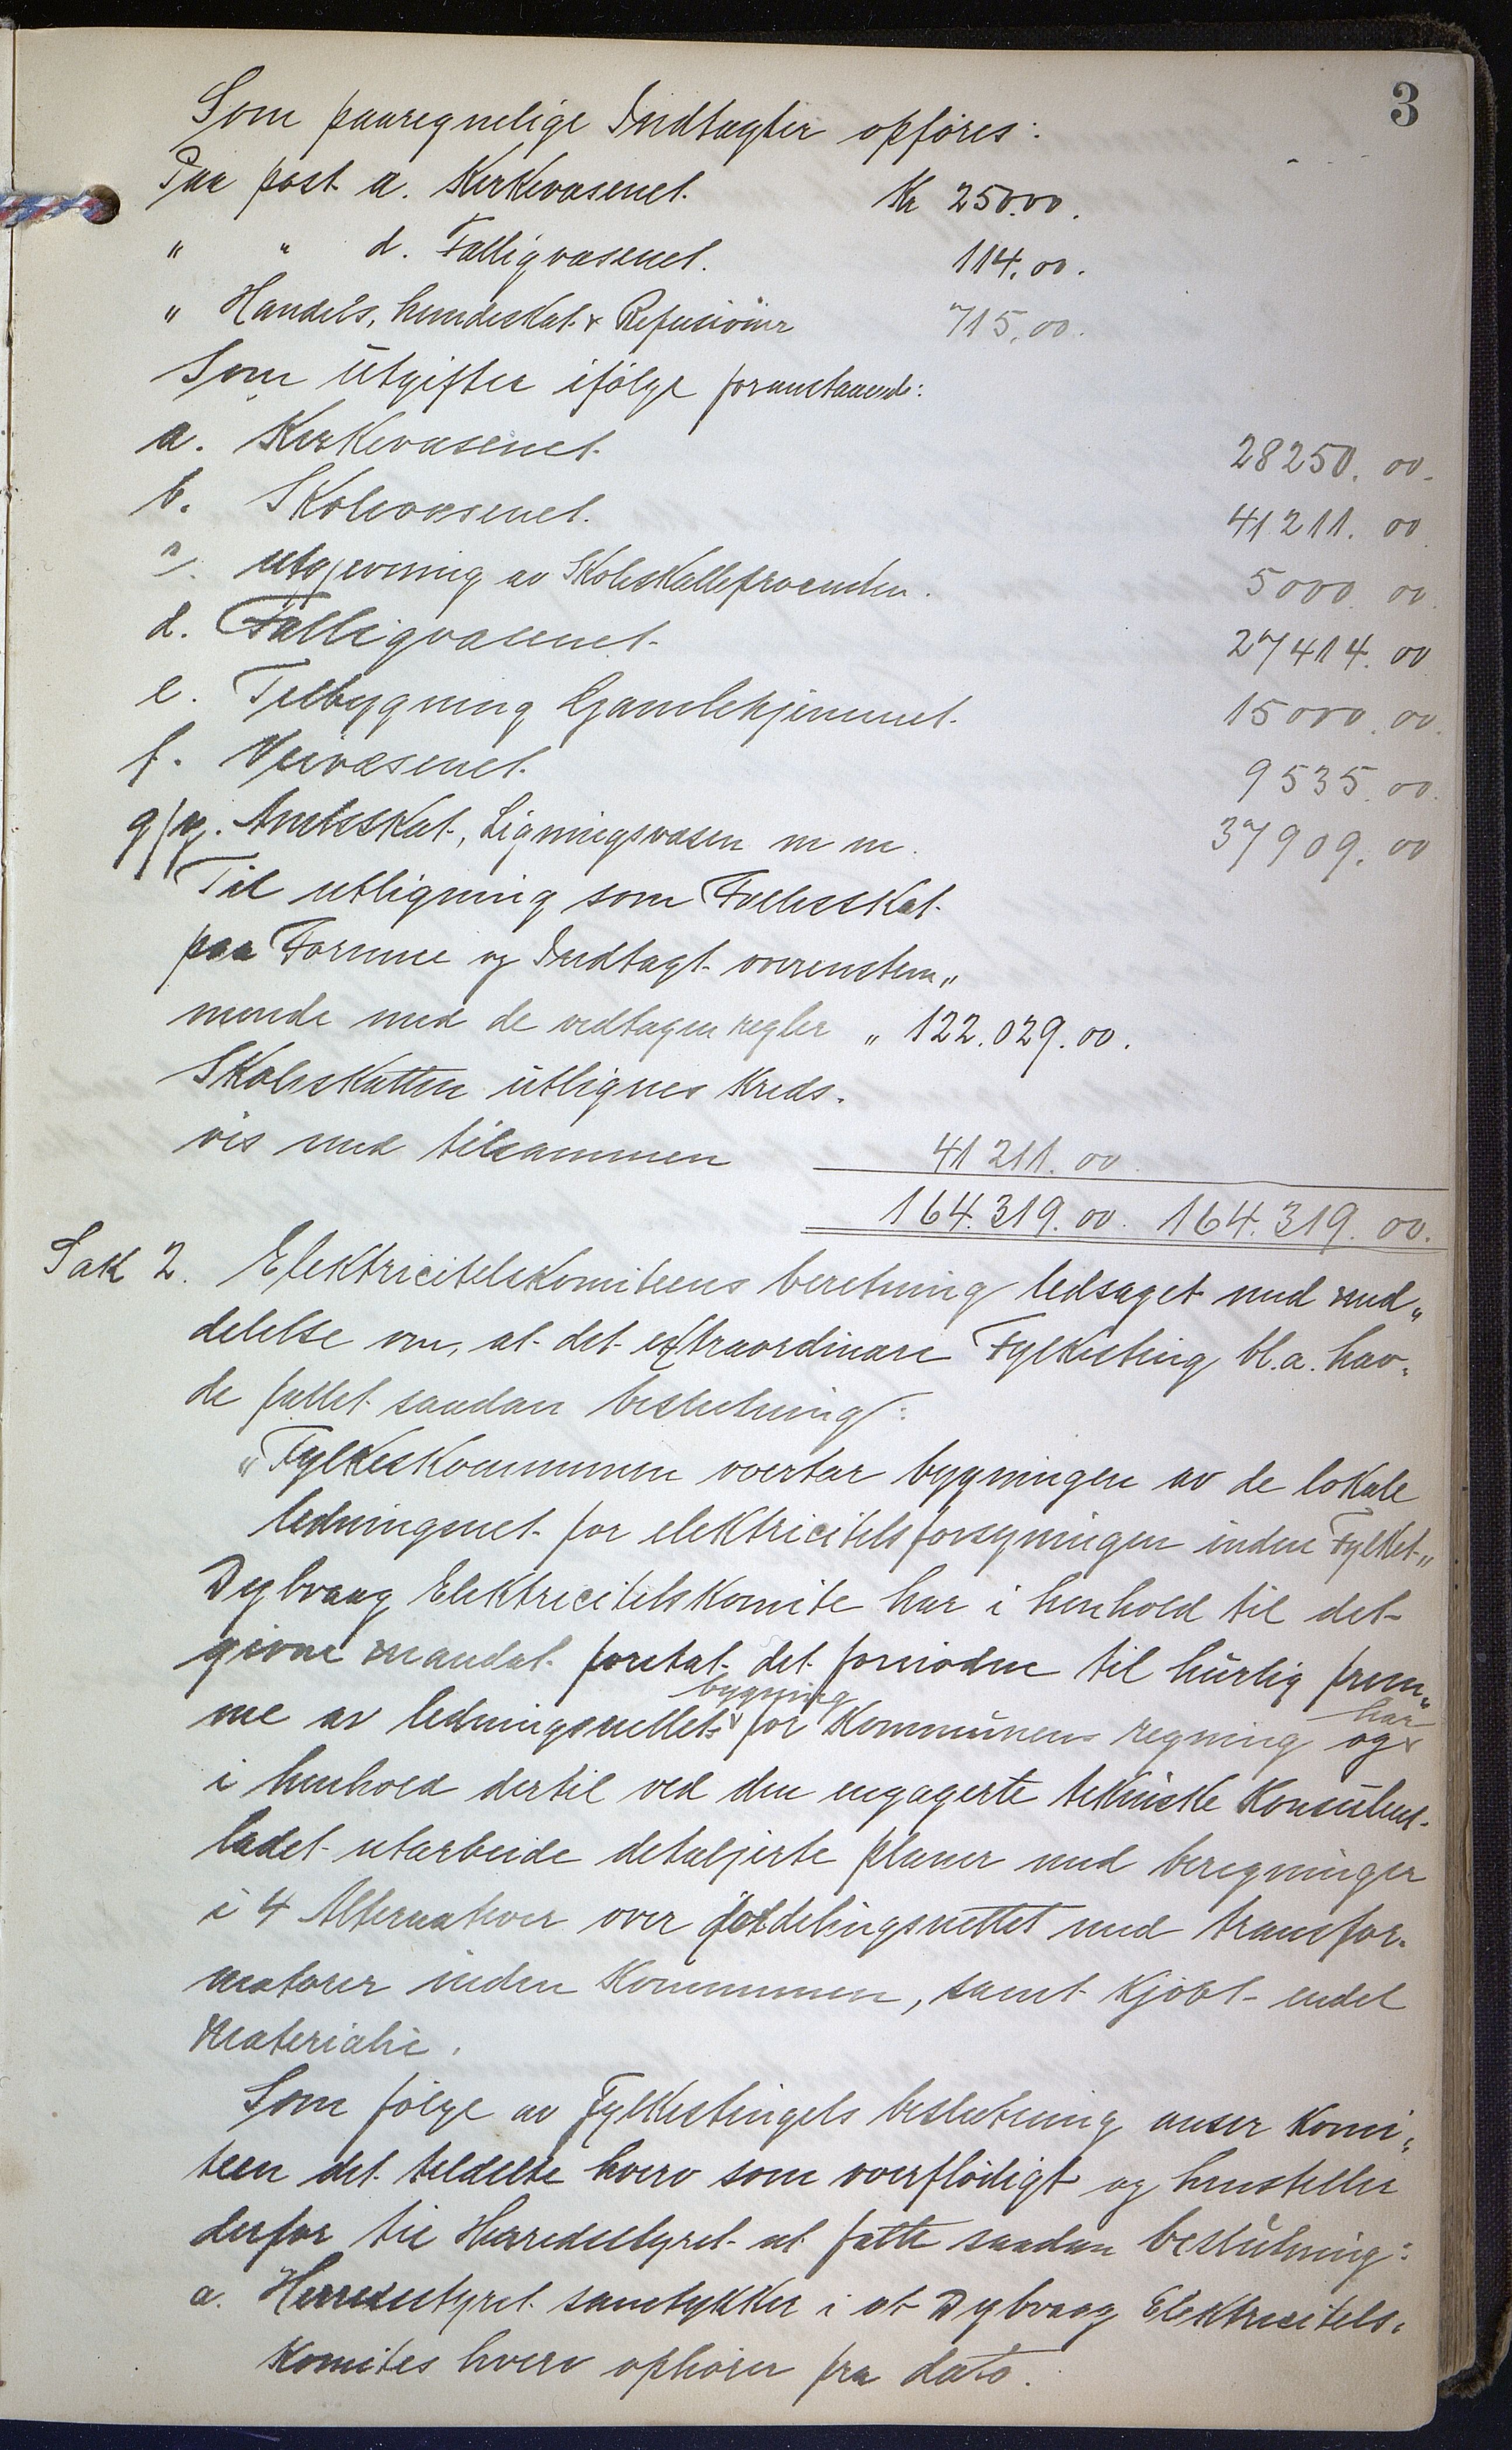 3
Som paaregnelige Indtægter opføres:
Paa post a. Kirkevæsenet. Kr 250.00.
" " d. Fattigvæsenet. 114.00.
" Handels, hundeskat & Refusioner 715,00.
Som utgifter ifølge foranstaaende:
a. Kirkevæsenet. 28250.00.
b. Skolevæsenet. 41211.00
utgjevning av Skoleskattefrœenden. 5000 00.
d. Fattigvæsenet. 27414.00
e. Tilbygning Gamlehjemmet. 15000.00.
f. Veivæsenet. 9535.00.
g/ Amtsskat, Ligningsvæsen m m. 37909.00
Til utligning som Fællesskat
paa Formue og Indtægt overenstem„
mende med de vedtagen regler „ 122.029.00.
Skoleskatten utlignes Kreds-
vis med tilsammen 41211.00.
164.319.00. 164.319.00.
Sak 2. Elektricitetskomiteens beretning ledsaget med med„
delelse om, at det extraordinære Fylkesting bl.a. hav-
de fattet saadan beslutning:
„Fylkeskommunen overtar bygningen av de lokale
ledningsnet for elektricitetsforsyningen inden Fylket„
Dybvaag Elektricitetskomite har i henhold til det
givne mandat foretat det fornødne til hurtig frem„
me av ledningsnettets bygning for Kommunens regning og har
i henhold dertil ved den engagerte tekniske Konsulent
ladet utarbeide detaljerte planer med beregninger
i 4 Alternativer over fordelingsnettet med transfor-
matorer inden Kommunen, samt kjøbt endel
Materialie.
Som følge av Fylkestingets beslutning anser Komi-
teen det tildelte hverv som overflødigt og henstiller
derfor til Herredsstyret at fatte saadan beslutning:
a. Herredsstyret samtykker i at Dybvaag Elektricitets-
Komites hverv ophører fra dato.